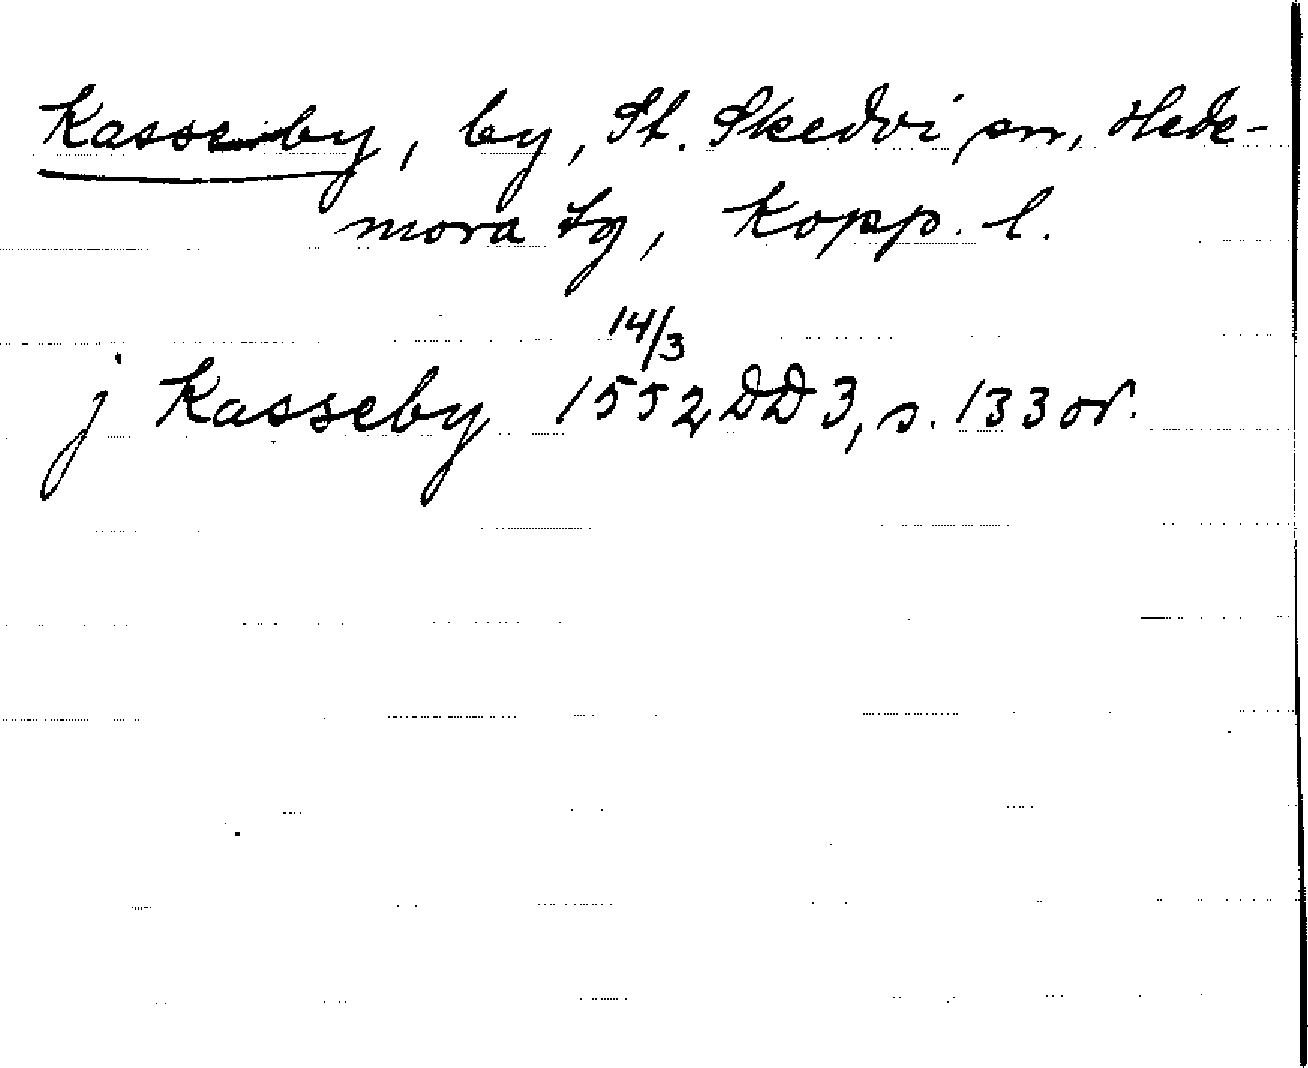 Kasseby, by, St. Skedvi sn, Hede-
mora tg, Kopp. l.
14/3
j Kasseby 1552 DD 3, s. 133 or.